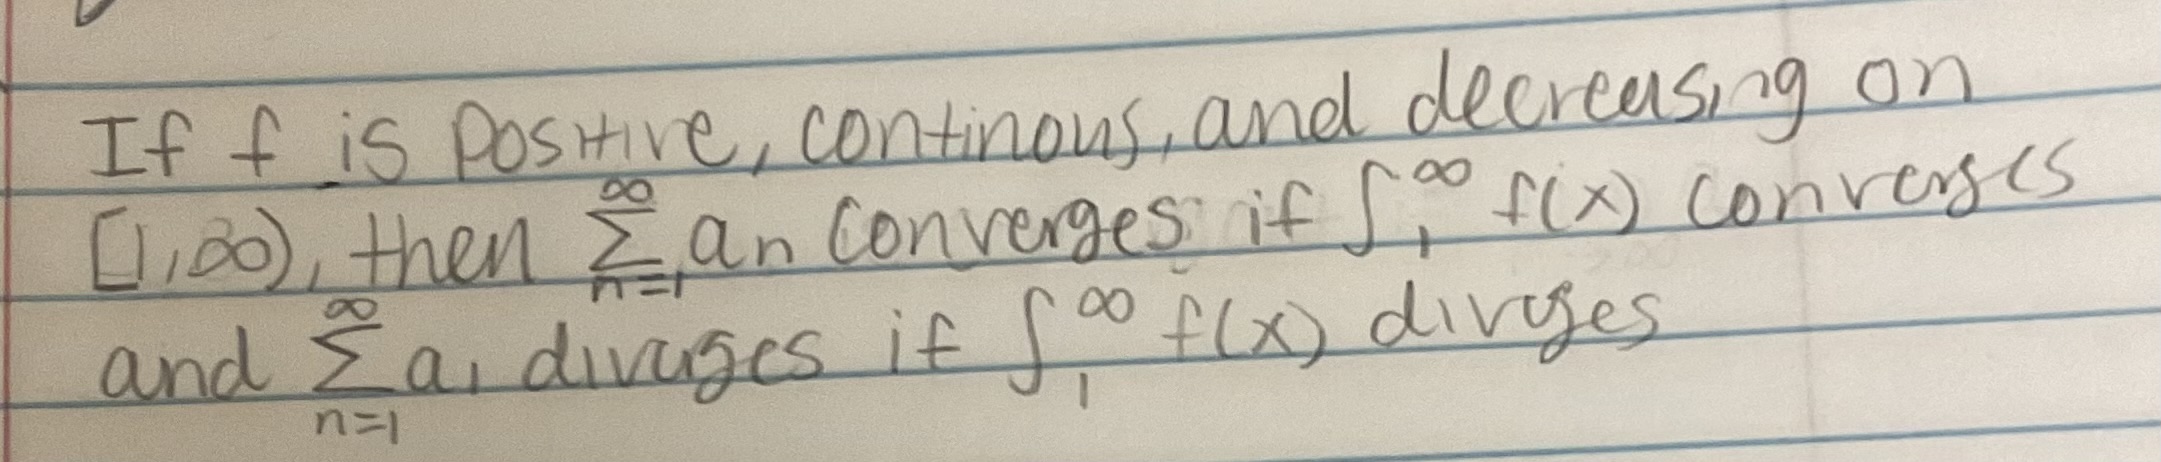 If f is positive, continous, and decreasing on
[1,∞), then ∞∑n=1 an converges if ∫1^∞ f(x) converges
and ∞∑n=1 a, diverges if ∫1^∞ f(x) diverges